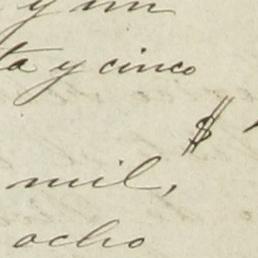 y un
ta y cinco
$
mil,
ocho